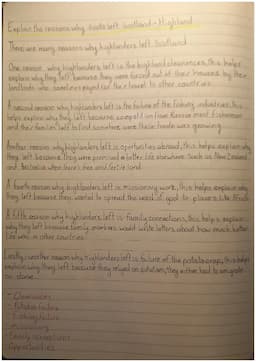 Explain the reasons why Scots left Scotland - Highland
There are many reasons why highlanders left Scotland.
One reason why highlanders left is the highland clearances, this helps
explain why they left because they were forced out of their houses by their
landlords who sometimes payed for their travel to other countries.
A second reason why highlanders left is the failure of the fishing industries, this
helps explain why they left because competition from Russia meant fishermen
and their families left to find somewhere were there trade was growing.
Another reason why highlanders left is oportunities abroad, this helps explain why
they left because they were promised a better life elsewhere such as New Zealand
and Australia when there's free and fertile land.
A fourth reason why highlanders left is missionary work, this helps explain why
they left because they wanted to spread the word of god to places like Africa
A fifth reason why highlanders left is family connections, this helps explain
why they left because family members would write letters about how much better
life was in other countries.
Lastly another reason why highlanders left is failure of the potato crops, this helps
explain why they left because they relyed on potatoes, they either had to emigrate
or starve.
- Clearances
- Potatoe failure
- Fishing failure
- Missionary
- Family connections
- Opportunities